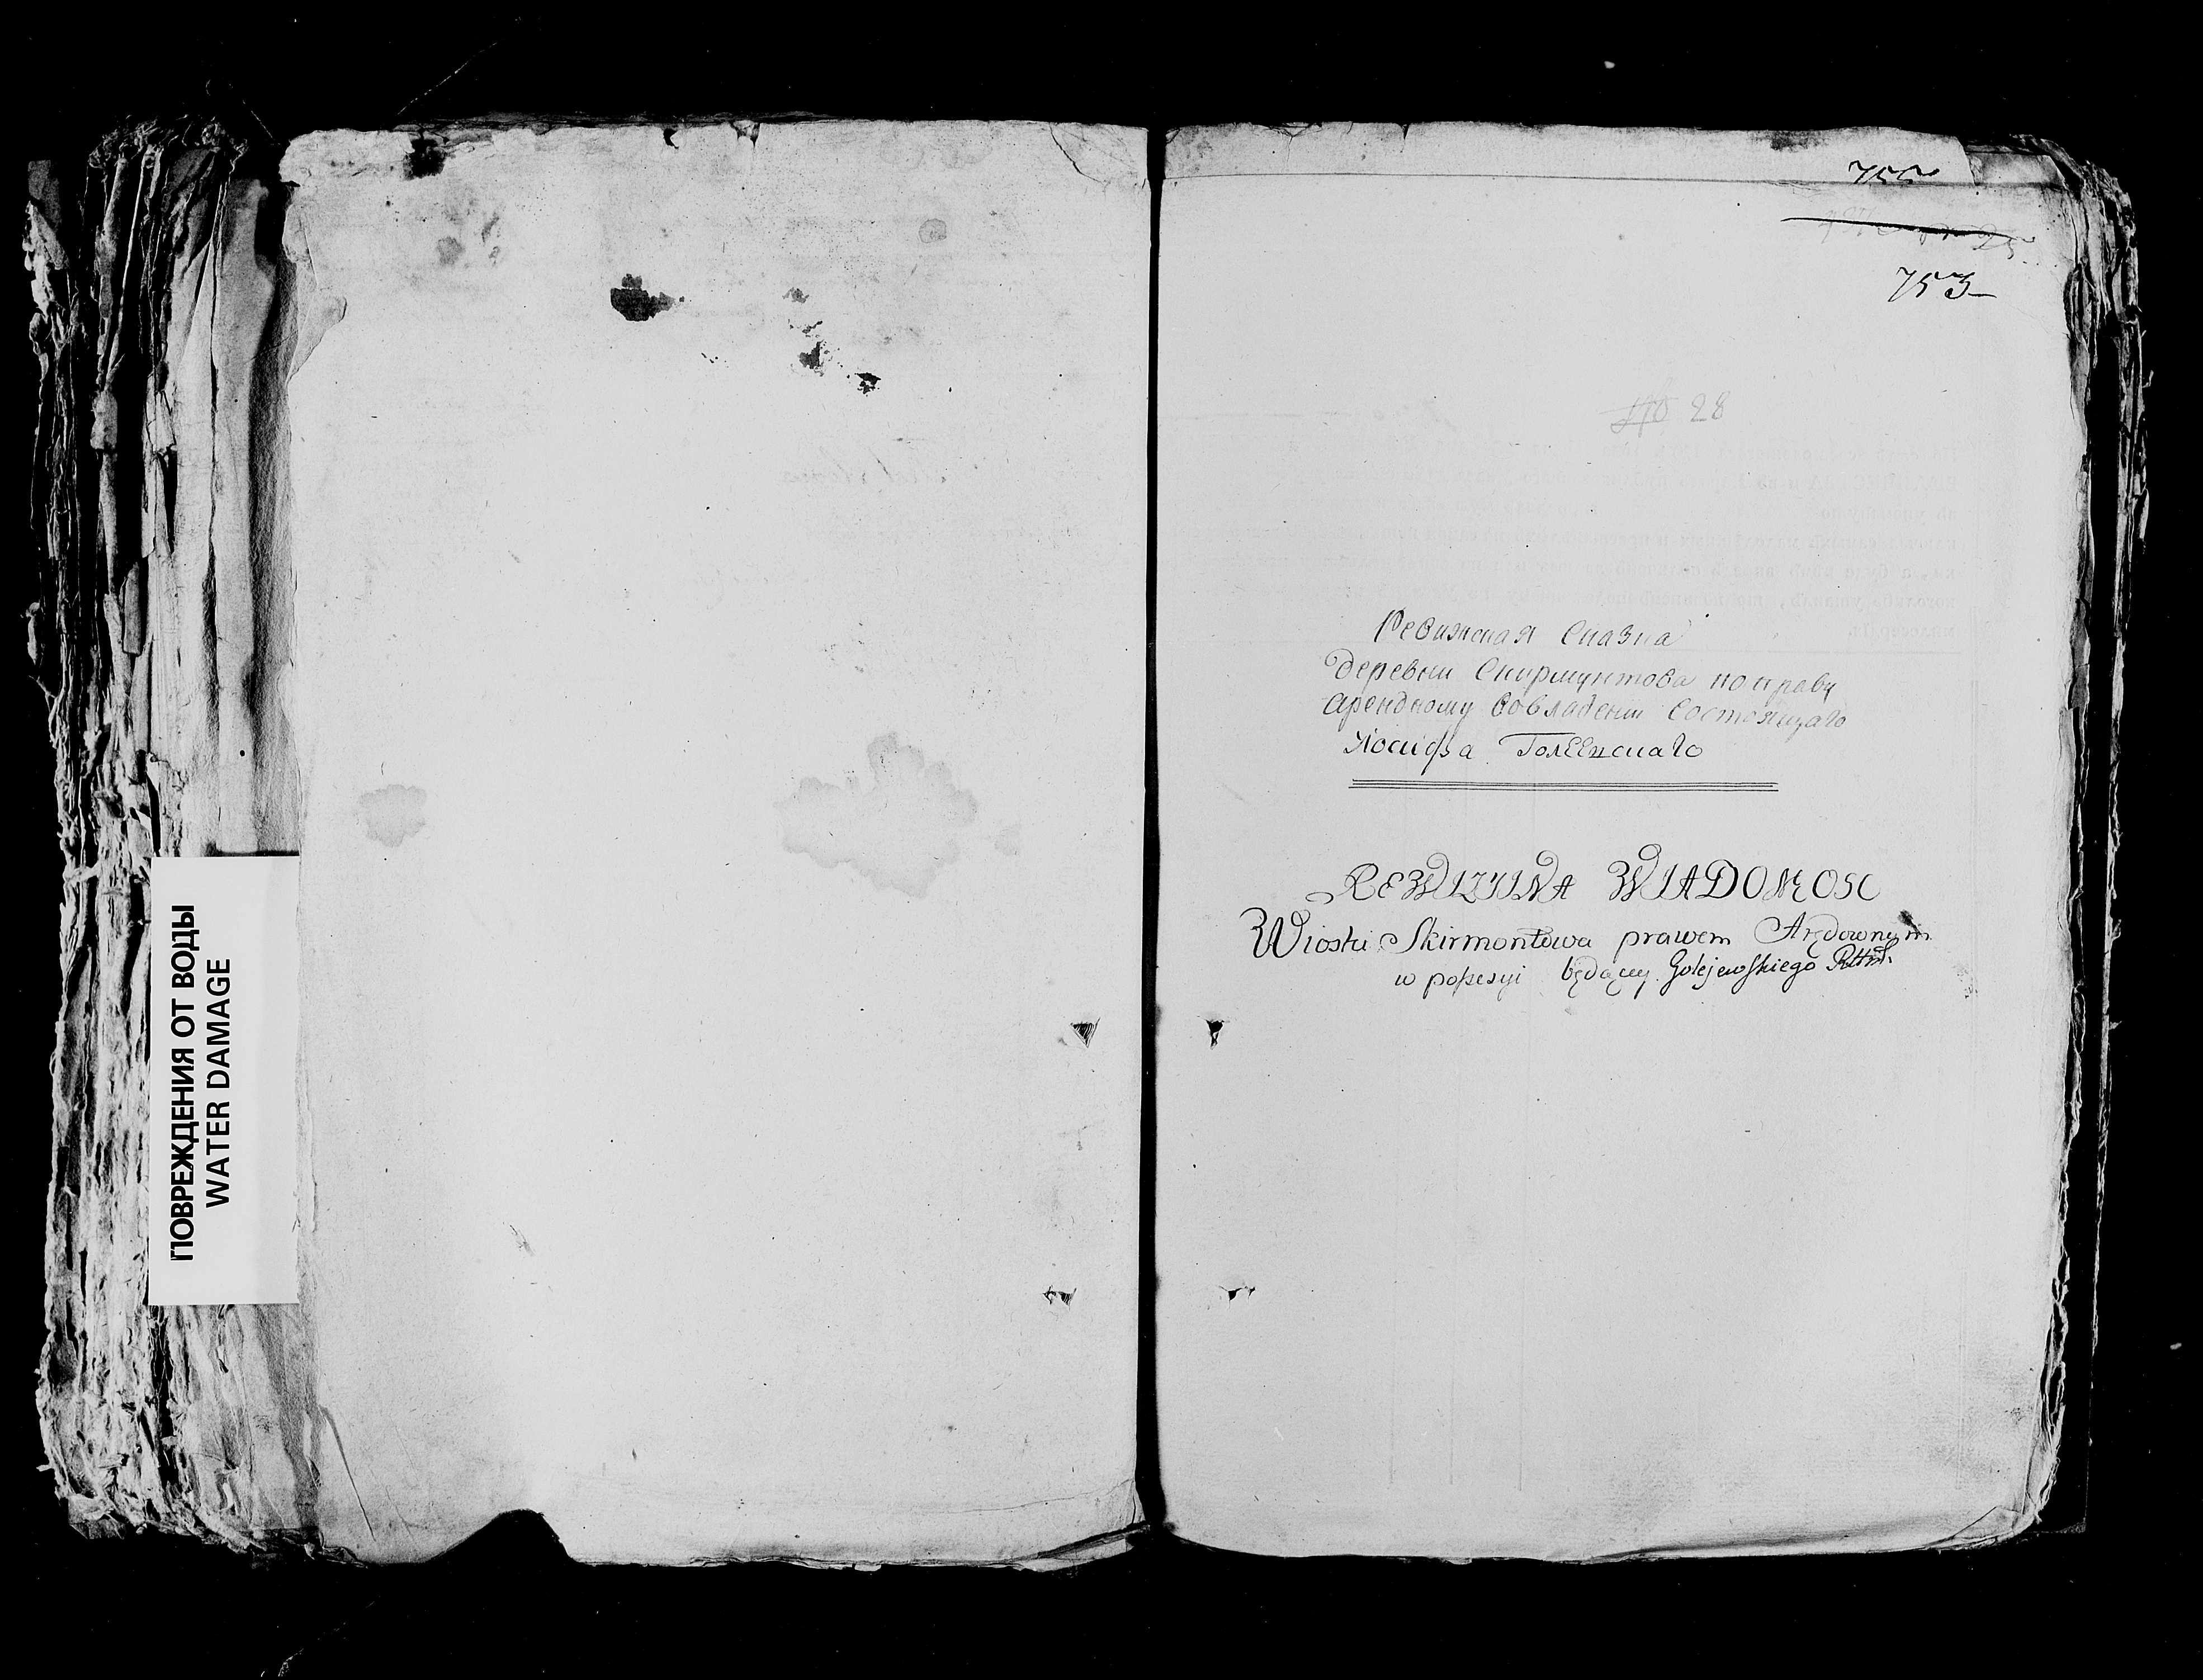 ПОВРЕЖДЕНИЯ ОТ ВОДЫ
WATER DAMAGE
753
28
Ревижская Сказка
деревни Скирмунтова по праву
арендному вовладении состоящаго
Иосифа Голеевскаго
REWIZYINA WIADOMOSC
Wioski Skirmontowa prawem Arędownym
w possesyi będącey Golejewskiego